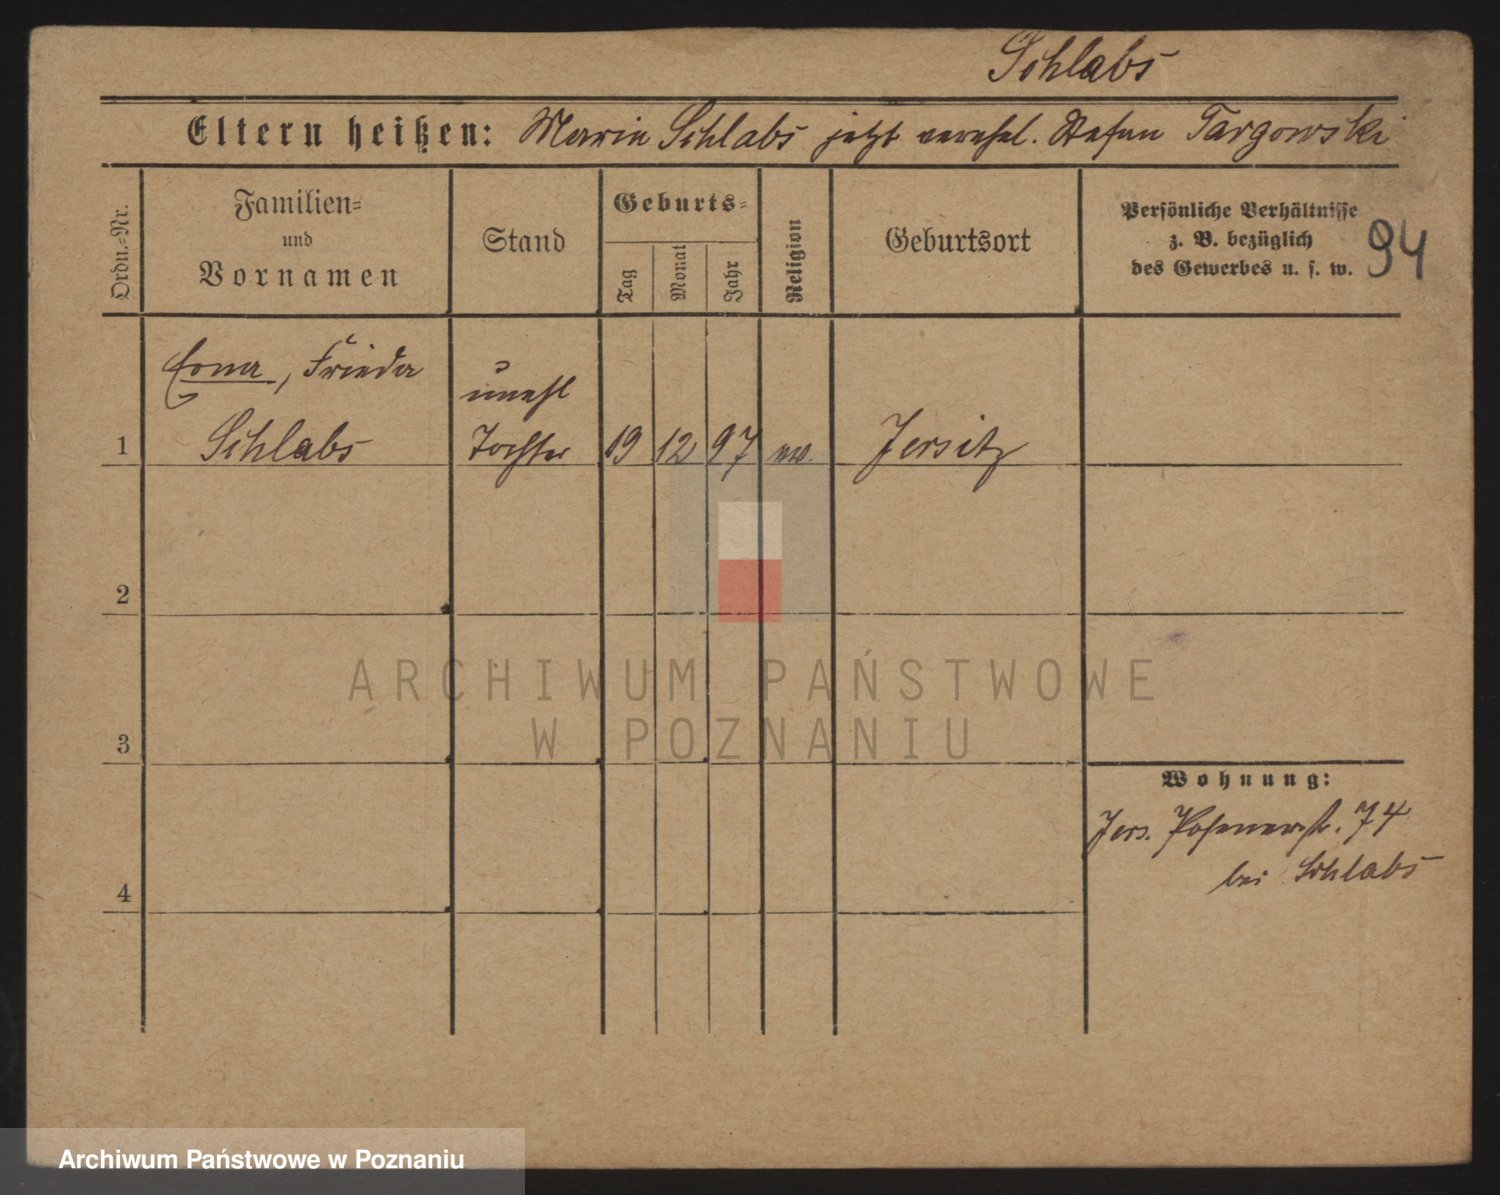 Schlabs
Eltern heißen: Marie Schlabs jetzt verehel. Stefan Targowski
Ordn.=Nr.
Familien=
und
Vornamen
Stand
Geburts=
Tag
Monat
Jahr
Religion
Geburtsort
Persönliche Verhältnisse
z. B. bezüglich
des Gewerbes u. s. w.
94
Erna, Frieda
Schlabs
unehl
Tochter
1
19
12
97
ev.
Jersitz
2
3
4
Wohnung:
Jers. Posenerstr. 74
bei Schlabs
ARCHIWUM PAŃSTWOWE
W POZNANIU
Archiwum Państwowe w Poznaniu